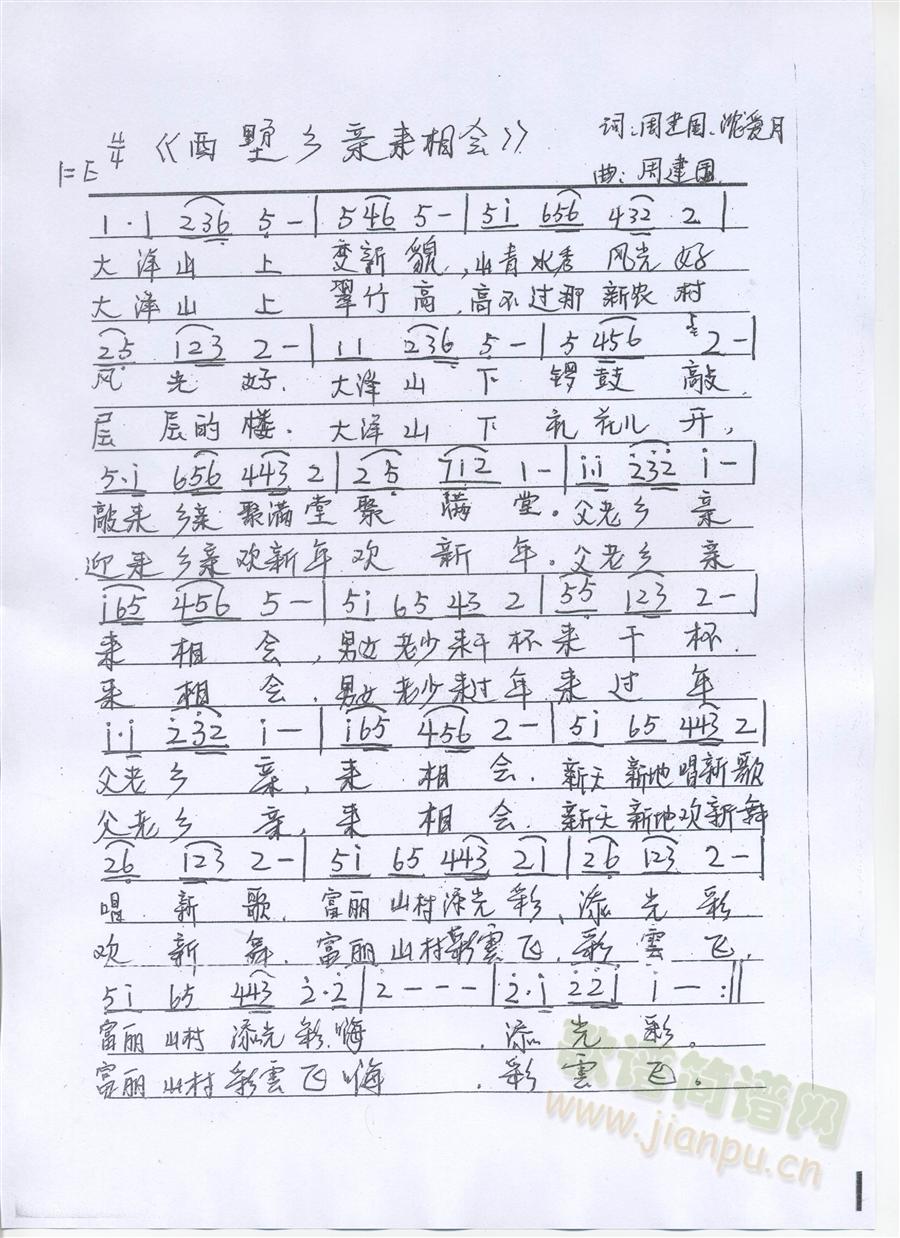 1=E 4/4 《西墅乡亲来相会》 词:周建国、沈爱月
曲:周建国
1·1 236 5 - | 5 46 5 - | 5i 656 432 2 |
大泽山上 变新貌,山青水秀 风光好
大泽山上 翠竹高,高不过那新农村
25 123 2 - | 11 236 5 - | 5 456 2 - |
风光好. 大泽山下 锣鼓敲.
层层的楼. 大泽山下 礼花儿开,
5·i 656 443 2 | 25 712 1 - | i·i 232 i - |
敲来乡亲聚满堂聚满堂。父老乡亲
迎来乡亲欢新年欢新年。父老乡亲
i65 456 5 - | 5i 65 43 2 | 55 123 2 - |
来相会,男女老少来干杯来干杯.
来相会.男女老少来过年来过年
i·i 232 i - | i65 456 2 - | 5i 65 443 2 |
父老乡亲,来相会.新天新地唱新歌
父老乡亲,来相会.新天新地欢新舞
26 123 2 - | 5i 65 443 21 | 26 123 2 - |
唱新歌.富丽山村添光彩、添光彩
欢新舞.富丽山村彩雲飞.彩雲飞,
5i 65 443 2·2 | 2 - - - | 2·i 22i i - :||
富丽山村添光彩.嗨.添光彩。
富丽山村彩雲飞嗨.彩雲飞.
歌谱简谱网
www.jianpu.cn